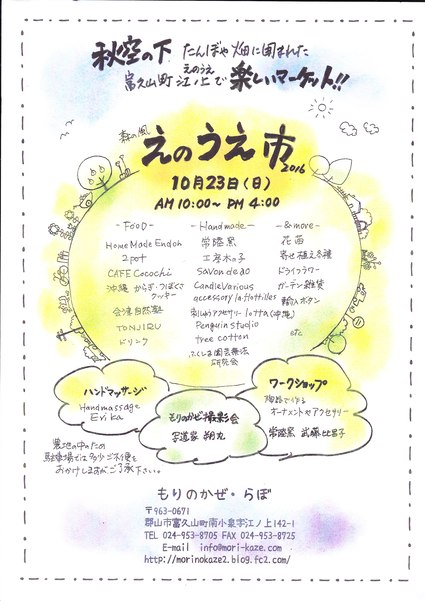 秋空の下 たんぼや畑に囲まれた
富久山町 江ノ上で 楽しいマーケット!!
えのうえ
森の風
えのうえ市
2016
10月23日(日)
AM 10:00～ PM 4:00
-FooD-
HomeMade Endoh
2pot
CAFE Cocochi
クッキー
会津自然塾
TONJIRU
ドリンク
-Handmade-
常陸窯
工房木の子
Savon de ao
Candle Various
accessory la.flottilles
刺しゅうアクセサリー lotta (沖縄)
Penguin studio
tree cotton
ふくしま園芸療法
研究会
-&more-
花苗
寄せ植え各種
ドライフラワー
ガーデン雑貨
輸入ボタン
etc
ハンドマッサージ
Handmassage
Erika
もりのかぜ撮影会
写道家
ワークショップ
陶器で作る
オーナメントやアクセサリー
常陸窯 武藤比呂子
墓地の中のため
駐車場では多少ご不便を
おかけしますがご了承下さい。
もりのかぜ・らぼ
〒963-0671
郡山市富久山町南小泉字江ノ上142-1
TEL 024-953-8705 FAX 024-953-8725
E-mail info@mori-kaze.com
http://morinokaze2.blog.fc2.com/